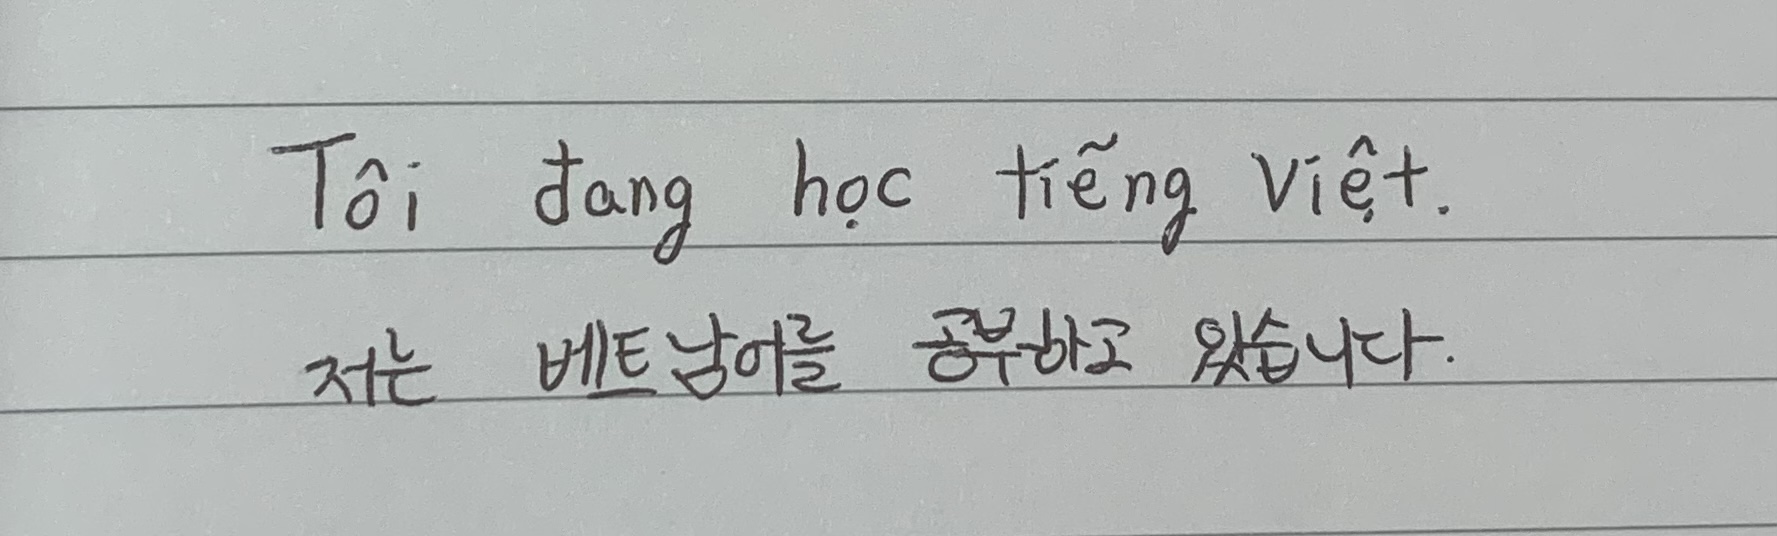 Tôi đang học tiễng Việt.
저는 베트남어를 공부하고 있습니다.